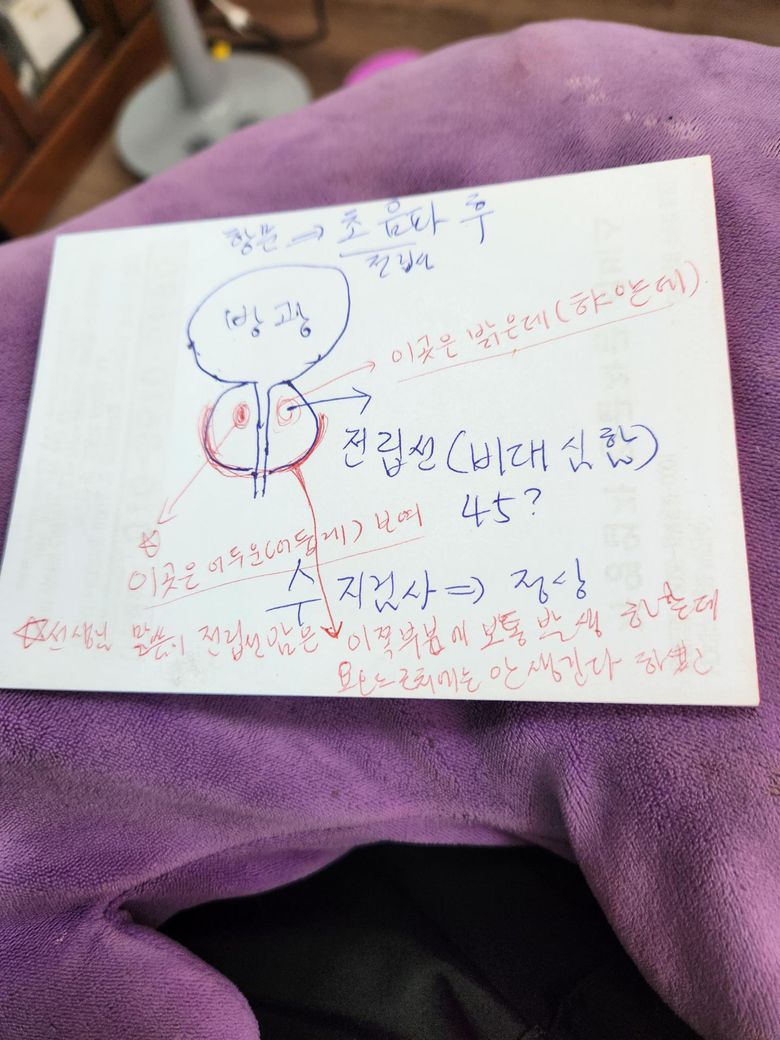 항문 => 초음파 후
전립선
방광
이곳은 밝은데(하얀데)
전립선(비대 심함)
45?
이곳은 어두운(어둡게) 보여
수지검사 => 정상
선생님 말씀이 전립선암은 이쪽부분에 보통 발생 하는데
요도 근처에는 안 생긴다 하였고